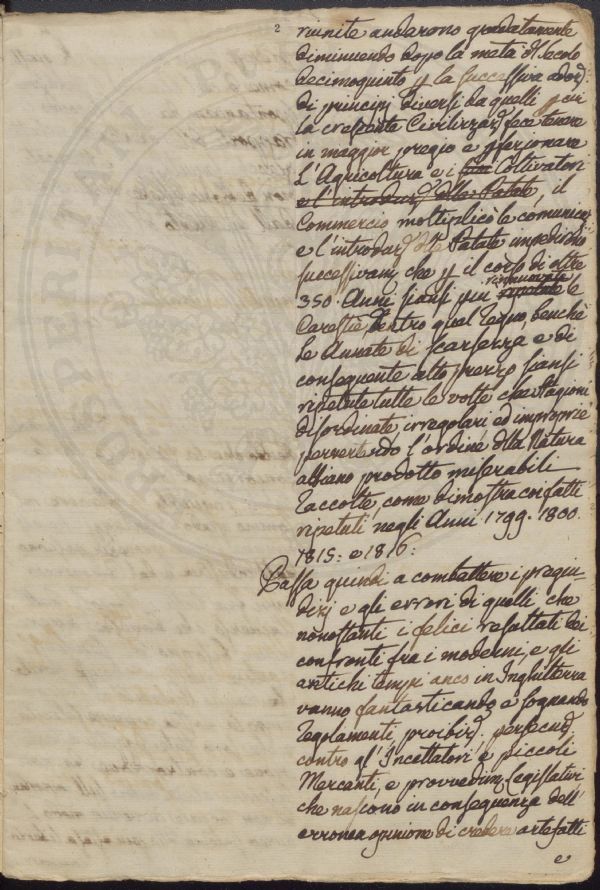 2
riunite andarono gradatamente
diminuendo dopo la metà del Secolo
decimoquinto p la successiva adoz.
di principj diversi da quelli, p cui
la crescente Civilizzaz. fece tenere
in maggior pregio e pfezionare
L'Agricoltura e i suoi Coltivatori
e l'introduz. delle Patate, il
Commercio moltiplicò le comunicaz.
e l'introduz. dlle Patate impedirono
successivam. che p il corso di oltre
350. Anni siansi più rinnovate ripetute le
Carestie, dentro quel Regno, benchè
Le Annate di scarsezza e di
conseguente alto prezzo siansi
ripetute tutte le volte che Stagioni
disordinate irregolari ed improprie
pervertendo l'ordine dlla Natura
abbiano prodotto miserabili
Raccolte, come dimostra coi fatti
ripetuti negli Anni 1799. 1800.
1815: e 1816:
Passa quindi a combattere i pregiu-
dizj e gli errori di quelli che
nonostanti i felici resultati dei
confronti fra i moderni, e gli
antichi tempi anco in Inghilterra
vanno fantasticando e sognando
regolamenti, proibiz. persecuz.
contro gl'Incettatori e piccoli
Mercanti, e provvedim. Legislativi
che nascono in conseguenza dell'
erronea opinione di credere artefatti
e